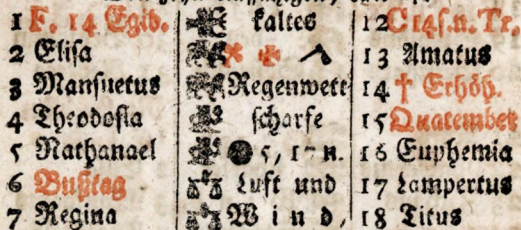 1 F. 14 Egid. kaltes 12 C 14 s. n. Tr.
2 Elisa 13 Amatus
3 Mansuetus Regenwett 14 † Erhöh.
4 Theodosia scharfe 15 Quatember
5 Nathanael 5, 17 n. 16 Euphemia
6 Bußtag Luft und 17 Lampertus
7 Regina Wind, 18 Titus